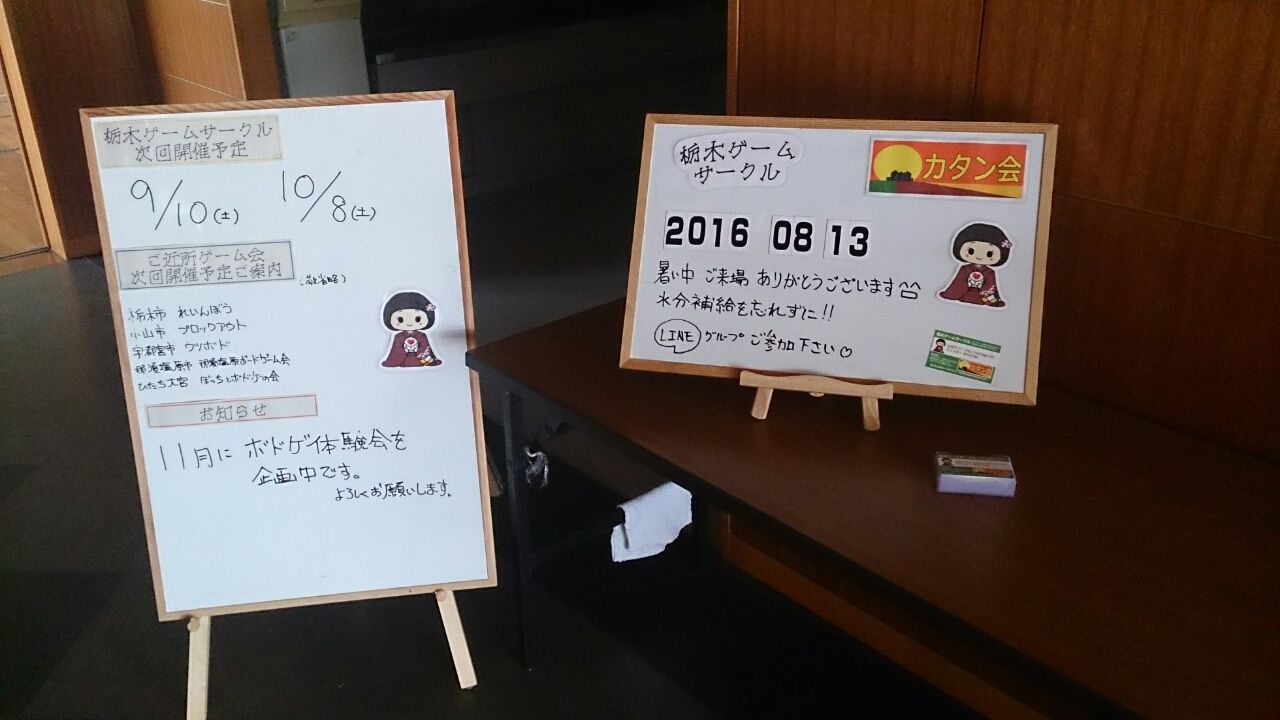 栃木ゲームサークル
次回開催予定
9/10(土) 10/8(土)
ご近所ゲーム会
次回開催予定ご案内
(敬省略)
栃木市 れいんぼう
小山市 ブロックアウト
宇都宮市 ウツボド
那須塩原市 那須塩原ボードゲーム会
ひたち大宮 ぼっちとボドゲの会
お知らせ
11月に ボドゲ体験会を
企画中です。
よろしくお願いします。
栃木ゲーム
サークル
カタン会
2016 08 13
暑い中 ご来場 ありがとうございます^^
水分補給を忘れずに!!
LINE グループ ご参加下さい♡
栃木ゲームサークル
カタン会